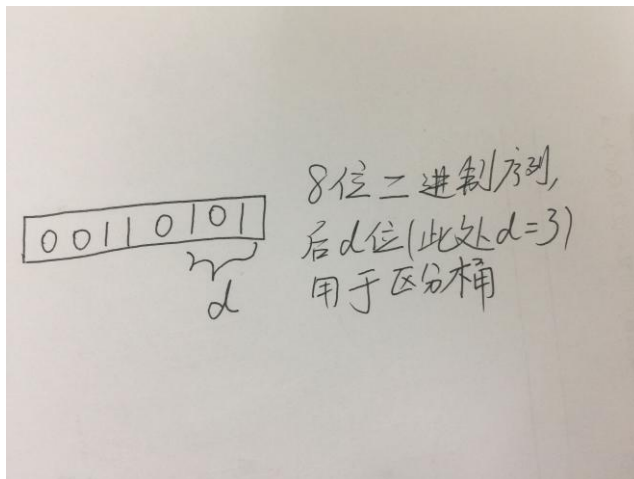 00110101
d
8位二进制序列,
后d位(此处d=3)
用于区分桶